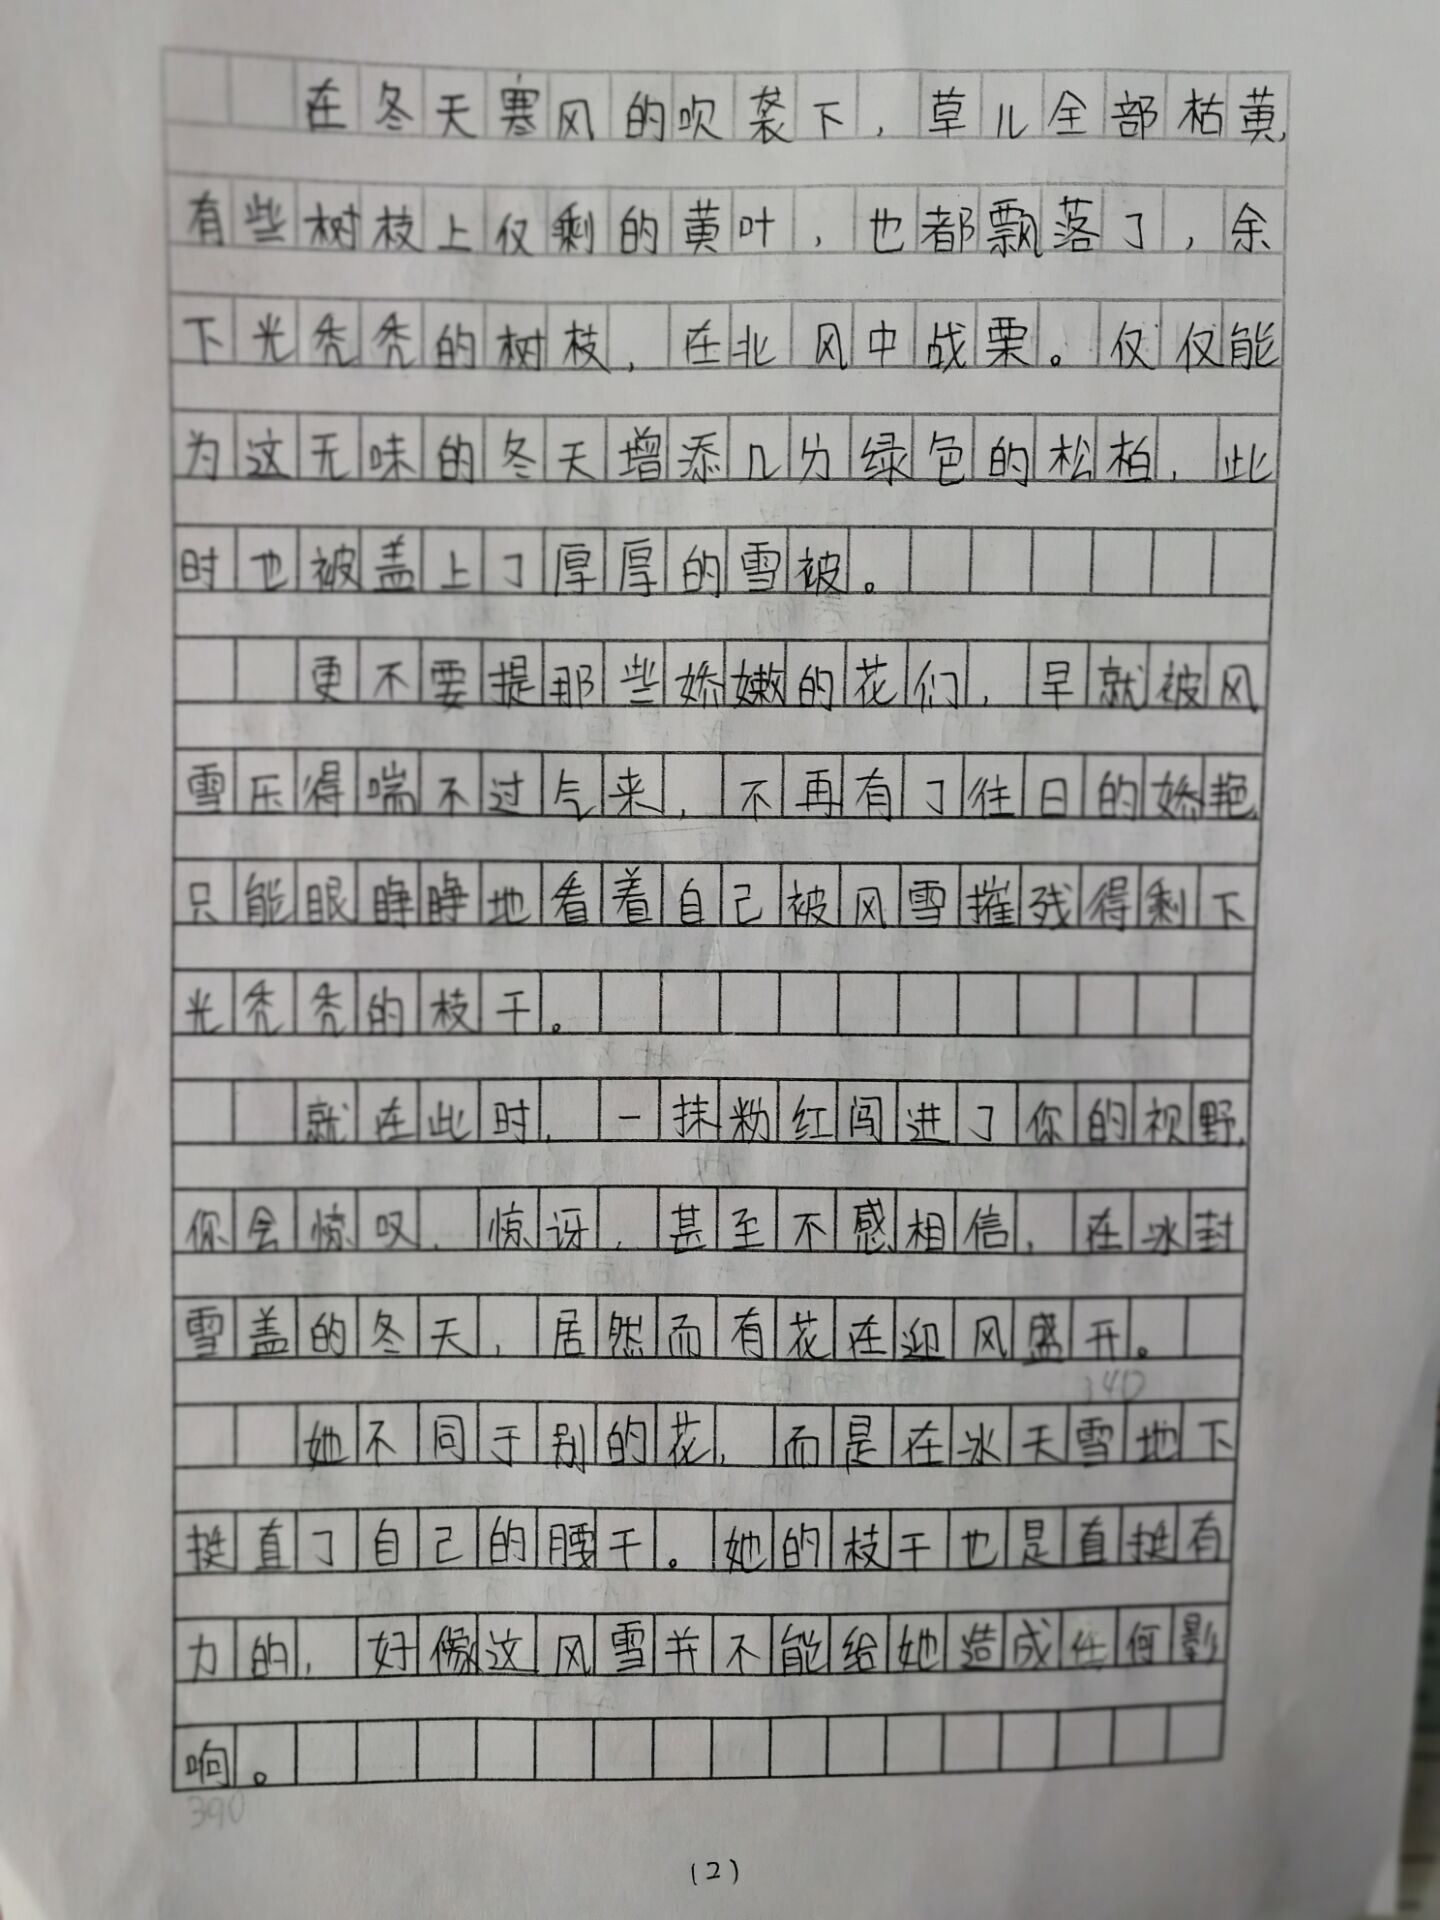 在冬天寒风的吹袭下，草儿全部枯黄，
有些树枝上仅剩的黄叶，也都飘落了，余
下光秃秃的树枝，在北风中战栗。仅仅能
为这无味的冬天增添几分绿色的松柏，此
时也被盖上了厚厚的雪被。
更不要提那些娇嫩的花们，早就被风
雪压得喘不过气来，不再有了往日的娇艳，
只能眼睁睁地看着自己被风雪摧残得剩下
光秃秃的枝干。
就在此时，一抹粉红闯进了你的视野，
你会惊叹，惊讶，甚至不感相信，在冰封
雪盖的冬天，居然而有花在迎风盛开。
340
她不同于别的花，而是在冰天雪地下
挺直了自己的腰干。她的枝干也是直挺有
力的，好像这风雪并不能给她造成任何影
响。
390
(2)